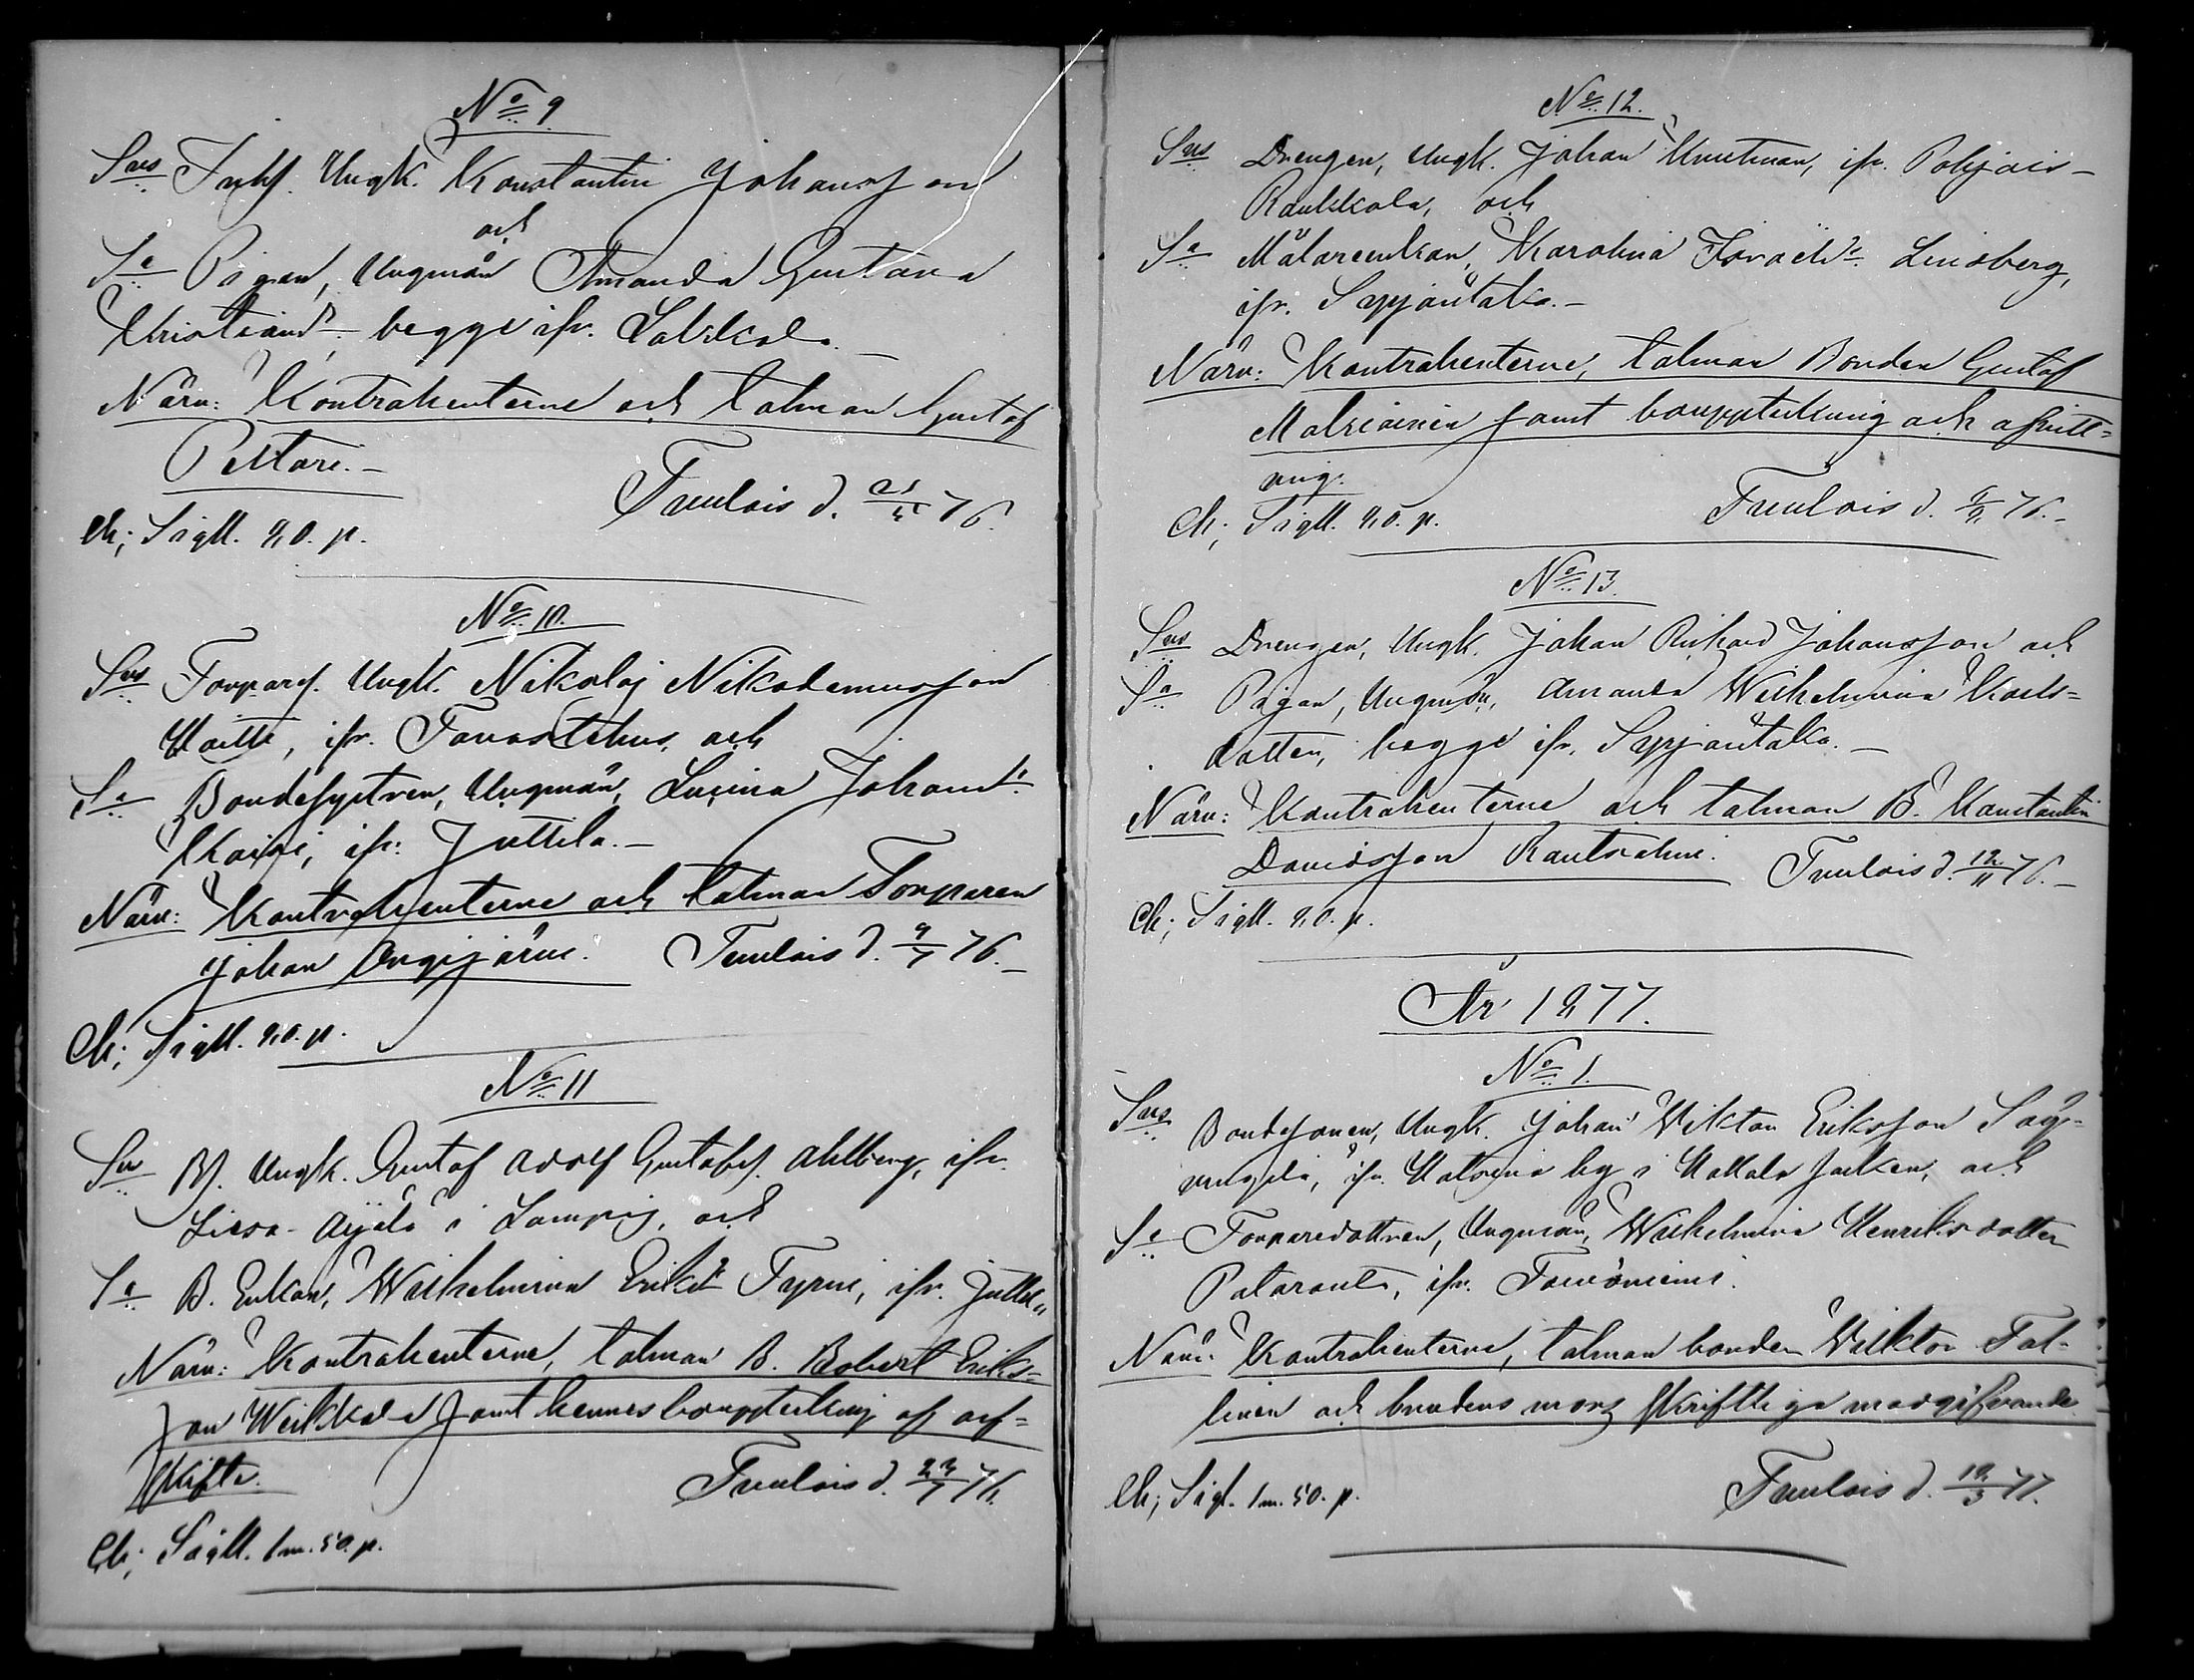 No 9
Sus Inhs. Ungk. Konstantin Johansson
och
Sa Pigan, Ungmön Amanda Gustava
Kristiansdr begge ifr. Sakkola.
Närv: Kontrahenterne och talman Gustaf
Peltari.
Tuulois d. 21/5 76.
Ch; Sigll. 80. p.
No 10.
Sus Torpars. Ungk. Nikolaj Nikodemusson
ifr. Tavastehus, och
Sa Bondesystren, Ungmön, Lusina Johansdr.
Kaipi, ifr. Juttila.
Närv: Kontrahenterne och talman Torparen
Johan Orgijärvi. Tuulois d. 9/7 76.
Ch; Sigll. 80. p.
No 11
Sus Bs. Ungk. Gustaf Adolf Gustafss. Ahlberg, ifr.
Liesa-Äijälä i Lampis, och
Sa B. Enkan, Wilhelmina Eriksdr Tyrni, ifr. Juttila
Närv: Kontrahenterne, talman B. Robert Eriks-
son Weikkola samt hennes bouppteckning och af-
skifte.
Tuulois d. 23/7 76.
Ch; Sigll. 1 m. 50. p.
No 12.
Sus Drengen, Ungk. Johan Knutman, ifr. Pohjois-
Raukkola, och
Sa Målareenkan, Karolina Israelsdr. Linsberg,
ifr. Syrjäntaka.
Närv: Kontrahenterne, talman Bonden Gustaf
samt bouppteckning och afvitt-
ring.
Tuulois d. 6/8 76.
Ch; Sigll. 80. p.
No 13.
Sus Drengen, Ungk. Johan Rickard Johansson och
Sa Pigan, Ungmön, Amanda Wilhelmina Karls-
dotter, begge ifr. Syrjäntaka.
Närv: Kontrahenterne och talman B. Konstantin
Davidsson Rautsalmi. Tuulois d. 12/11 76.
Ch; Sigll. 80. p.
År 1877.
No 1.
Sus Bondesonen, Ungk. Johan Viktor Eriksson Säy-
ringilä, ifr. by i Kalvola socken, och
Sa Torparedottren, Ungmön, Wilhelmina Henriksdotter
ifr. Toivoniemi.
Närv. Kontrahenterne, talman bonden Viktor Tal-
linen och brudens mors skriftliga medgifvande.
Ch; Sigl. 1 m. 50. p.
Tuulois d. 18/3 77.